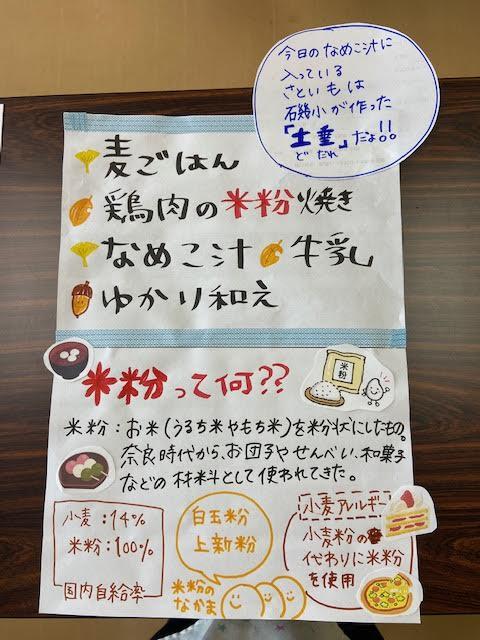 今日のなめこ汁に
入っている
さといもは
石幾小が作った
「土垂」だよ!!
どだれ
麦ごはん
鶏肉の米粉焼き
なめこ汁 牛乳
ゆかり和え
米粉って何??
米粉
米粉:お米(うるち米やもち米)を粉状にしたもの。
奈良時代から、お団子やせんべい、和菓子
などの材料として使われてきた。
小麦:14%
米粉:100%
国内自給率
白玉粉
上新粉
米粉の
なかま
小麦アレルギー
小麦粉の
代わりに米粉
を使用